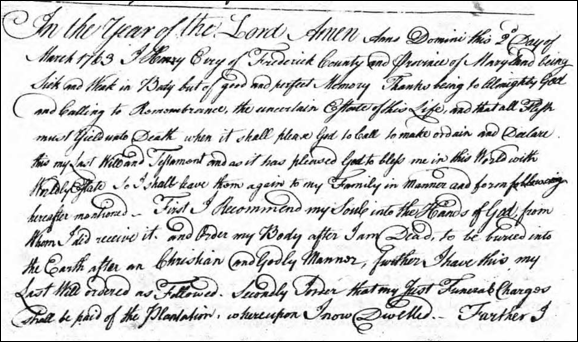 In the Year of the Lord Amen Anno Domini this 2d Day of
March 1763 I Henry Evey of Frederick County and Province of Maryland being
Sick and Weak in Body but of good and perfect Memory Thanks being to Almighty God
and Calling to Remembrance, the uncertain Estate of this Life, and that all Flesh
must Yield unto Death when it shall please God to Call to make ordain and Declare
this my Last Will and Testament and as it has pleased God to bless me in this World with
Worldly Estate So I shall leave them again to my Family in Manner and form following
hereafter mentioned – First I Recommend my Soul into the Hands of God, from
Whom I did receive it. and Order my Body after I am Dead, to be buried into
the Earth after an Christian and Godly Manner, further I have this my
Last Will ordered as Followed. Secondly I order that my Just Funeral Charges
shall be paid of the Plantation, whereupon I now Dwelled. – Farther I